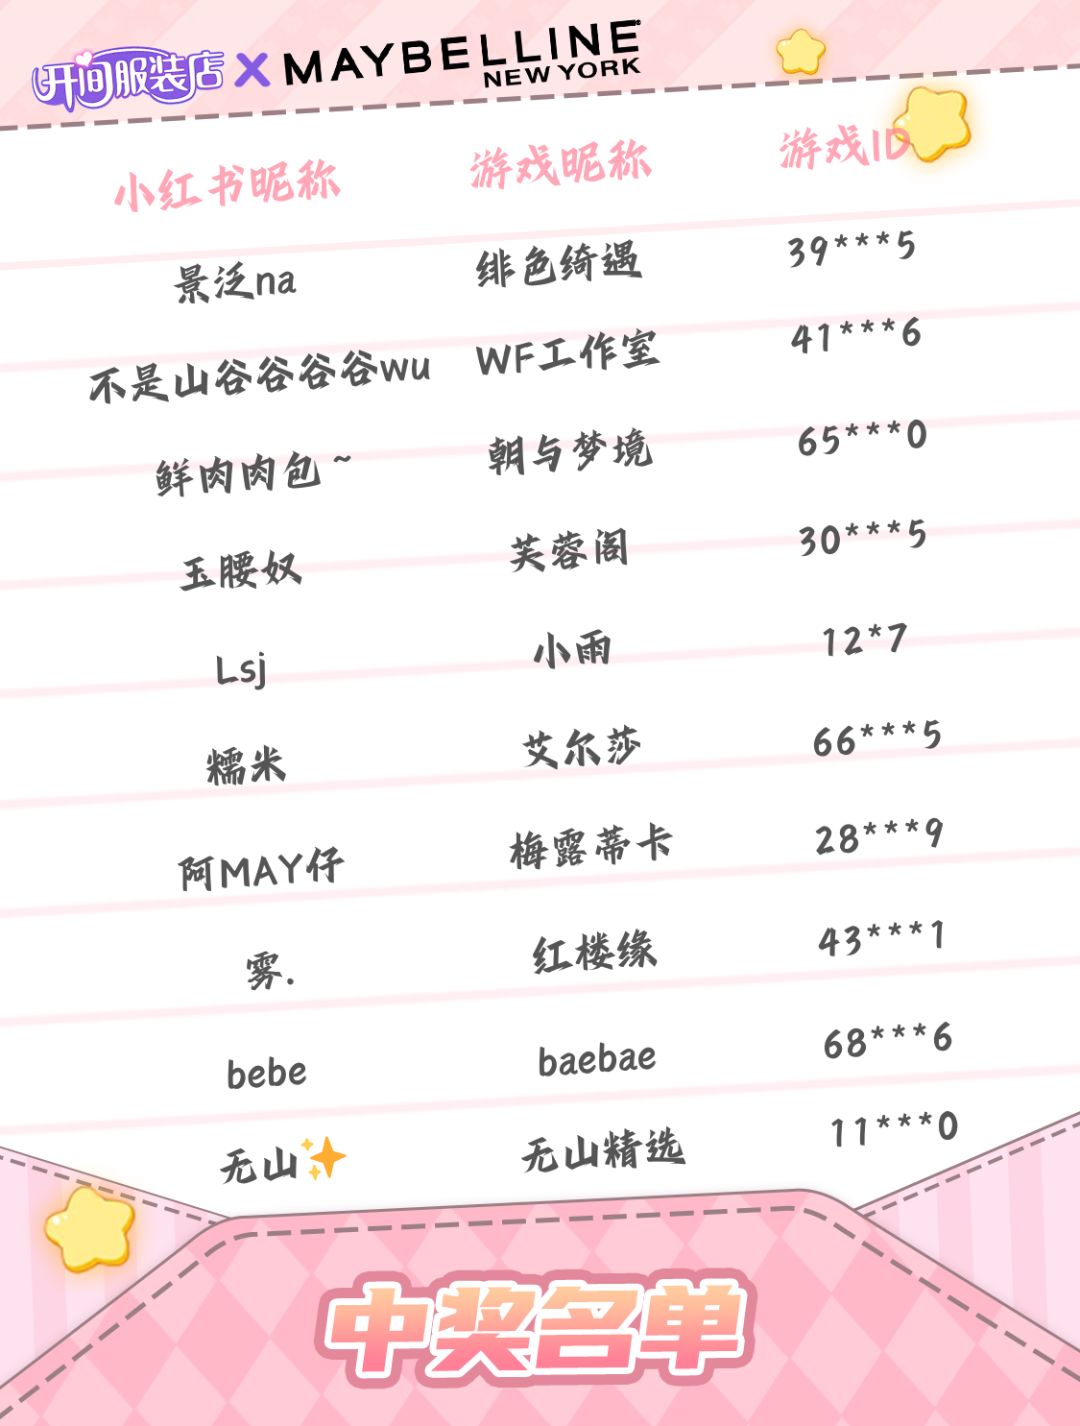 开间服装店 X MAYBELLINE
NEW YORK
小红书昵称 游戏昵称 游戏ID
景泛na 绯色绮遇 39***5
不是山谷谷谷谷wu WF工作室 41***6
鲜肉肉包~ 朝与梦境 65***0
玉腰奴 芙蓉阁 30***5
Lsj 小雨 12*7
糯米 艾尔莎 66***5
阿MAY仔 梅露蒂卡 28***9
雾. 红楼缘 43***1
bebe baebae 68***6
无山✨ 无山精选 11***0
中奖名单